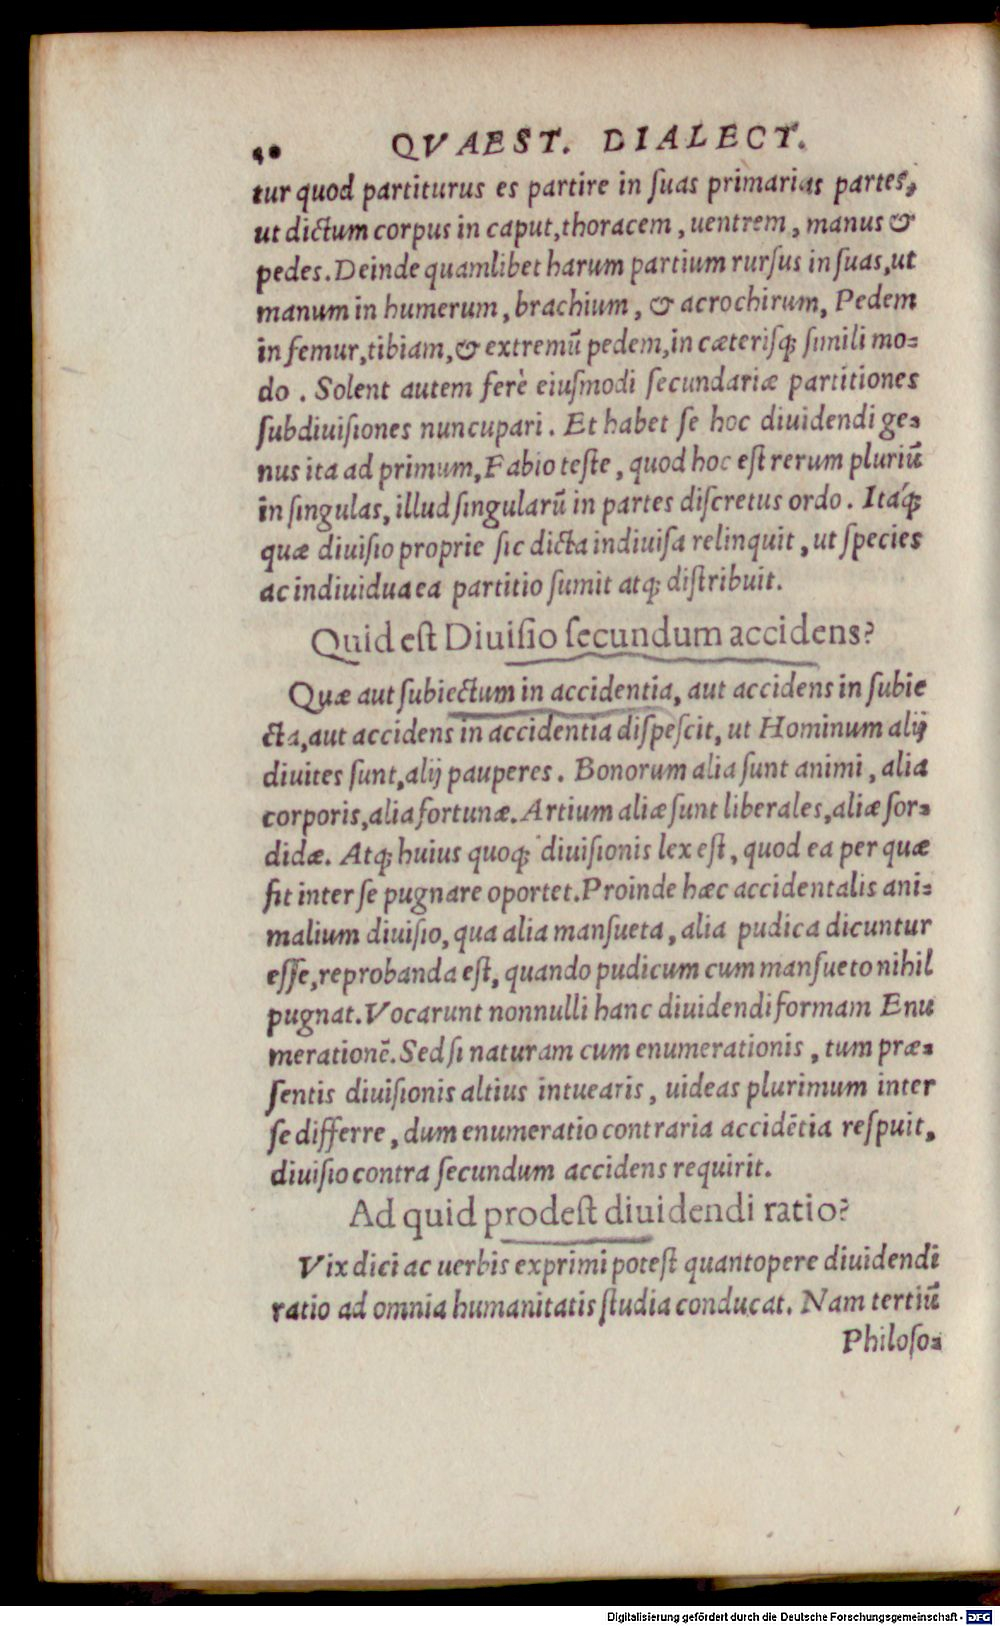 50 QVAEST. DIALECT.
tur quod partiturus es partire in ſuas primarias partes,
ut dictum corpus in caput, thoracem, uentrem, manus &
pedes. Deinde quamlibet harum partium rurſus in ſuas, ut
manum in humerum, brachium, & acrochirum, Pedem
in femur, tibiam, & extremũ pedem, in cæteriſq; ſimili mo=
do. Solent autem ferè eiuſmodi ſecundariæ partitiones
ſubdiuiſiones nuncupari. Et habet ſe hoc diuidendi ge=
nus ita ad primum, Fabio teſte, quod hoc eſt rerum pluriũ
in ſingulas, illud ſingularũ in partes diſcretus ordo. Itáq;
quæ diuiſio proprie ſic dicta indiuiſa relinquit, ut ſpecies
ac indiuidua ea partitio ſumit atq; diſtribuit.
Quid eſt Diuiſio ſecundum accidens?
Quæ aut ſubiectum in accidentia, aut accidens in ſubie
cta, aut accidens in accidentia diſpeſcit, ut Hominum alij
diuites ſunt, alij pauperes. Bonorum alia ſunt animi, alia
corporis, alia fortunæ. Artium aliæ ſunt liberales, aliæ ſor=
didæ. Atq; huius quoq; diuiſionis lex eſt, quod ea per quæ
fit inter ſe pugnare oportet. Proinde hæc accidentalis ani=
malium diuiſio, qua alia manſueta, alia pudica dicuntur
eſſe, reprobanda eſt, quando pudicum cum manſueto nihil
pugnat. Vocarunt nonnulli hanc diuidendi formam Enu
merationẽ. Sed ſi naturam cum enumerationis, tum præ=
ſentis diuiſionis altius intuearis, uideas plurimum inter
ſe differre, dum enumeratio contraria accidẽtia reſpuit,
diuiſio contra ſecundum accidens requirit.
Ad quid prodeſt diuidendi ratio?
Vix dici ac uerbis exprimi poteſt quantopere diuidendi
ratio ad omnia humanitatis ſtudia conducat. Nam tertiũ
Philoſo=
Digitalisierung gefördert durch die Deutsche Forschungsgemeinschaft - DFG